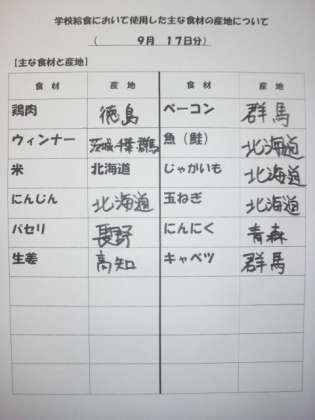 学校給食において使用した主な食材の産地について
（　9月　17日分）
【主な食材と産地】
食材　産地　食材　産地
鶏肉　徳島　ベーコン　群馬
ウィンナー　茨城・千葉・群馬　魚（鮭）　北海道
米　北海道　じゃがいも　北海道
にんじん　北海道　玉ねぎ　北海道
パセリ　長野　にんにく　青森
生姜　高知　キャベツ　群馬